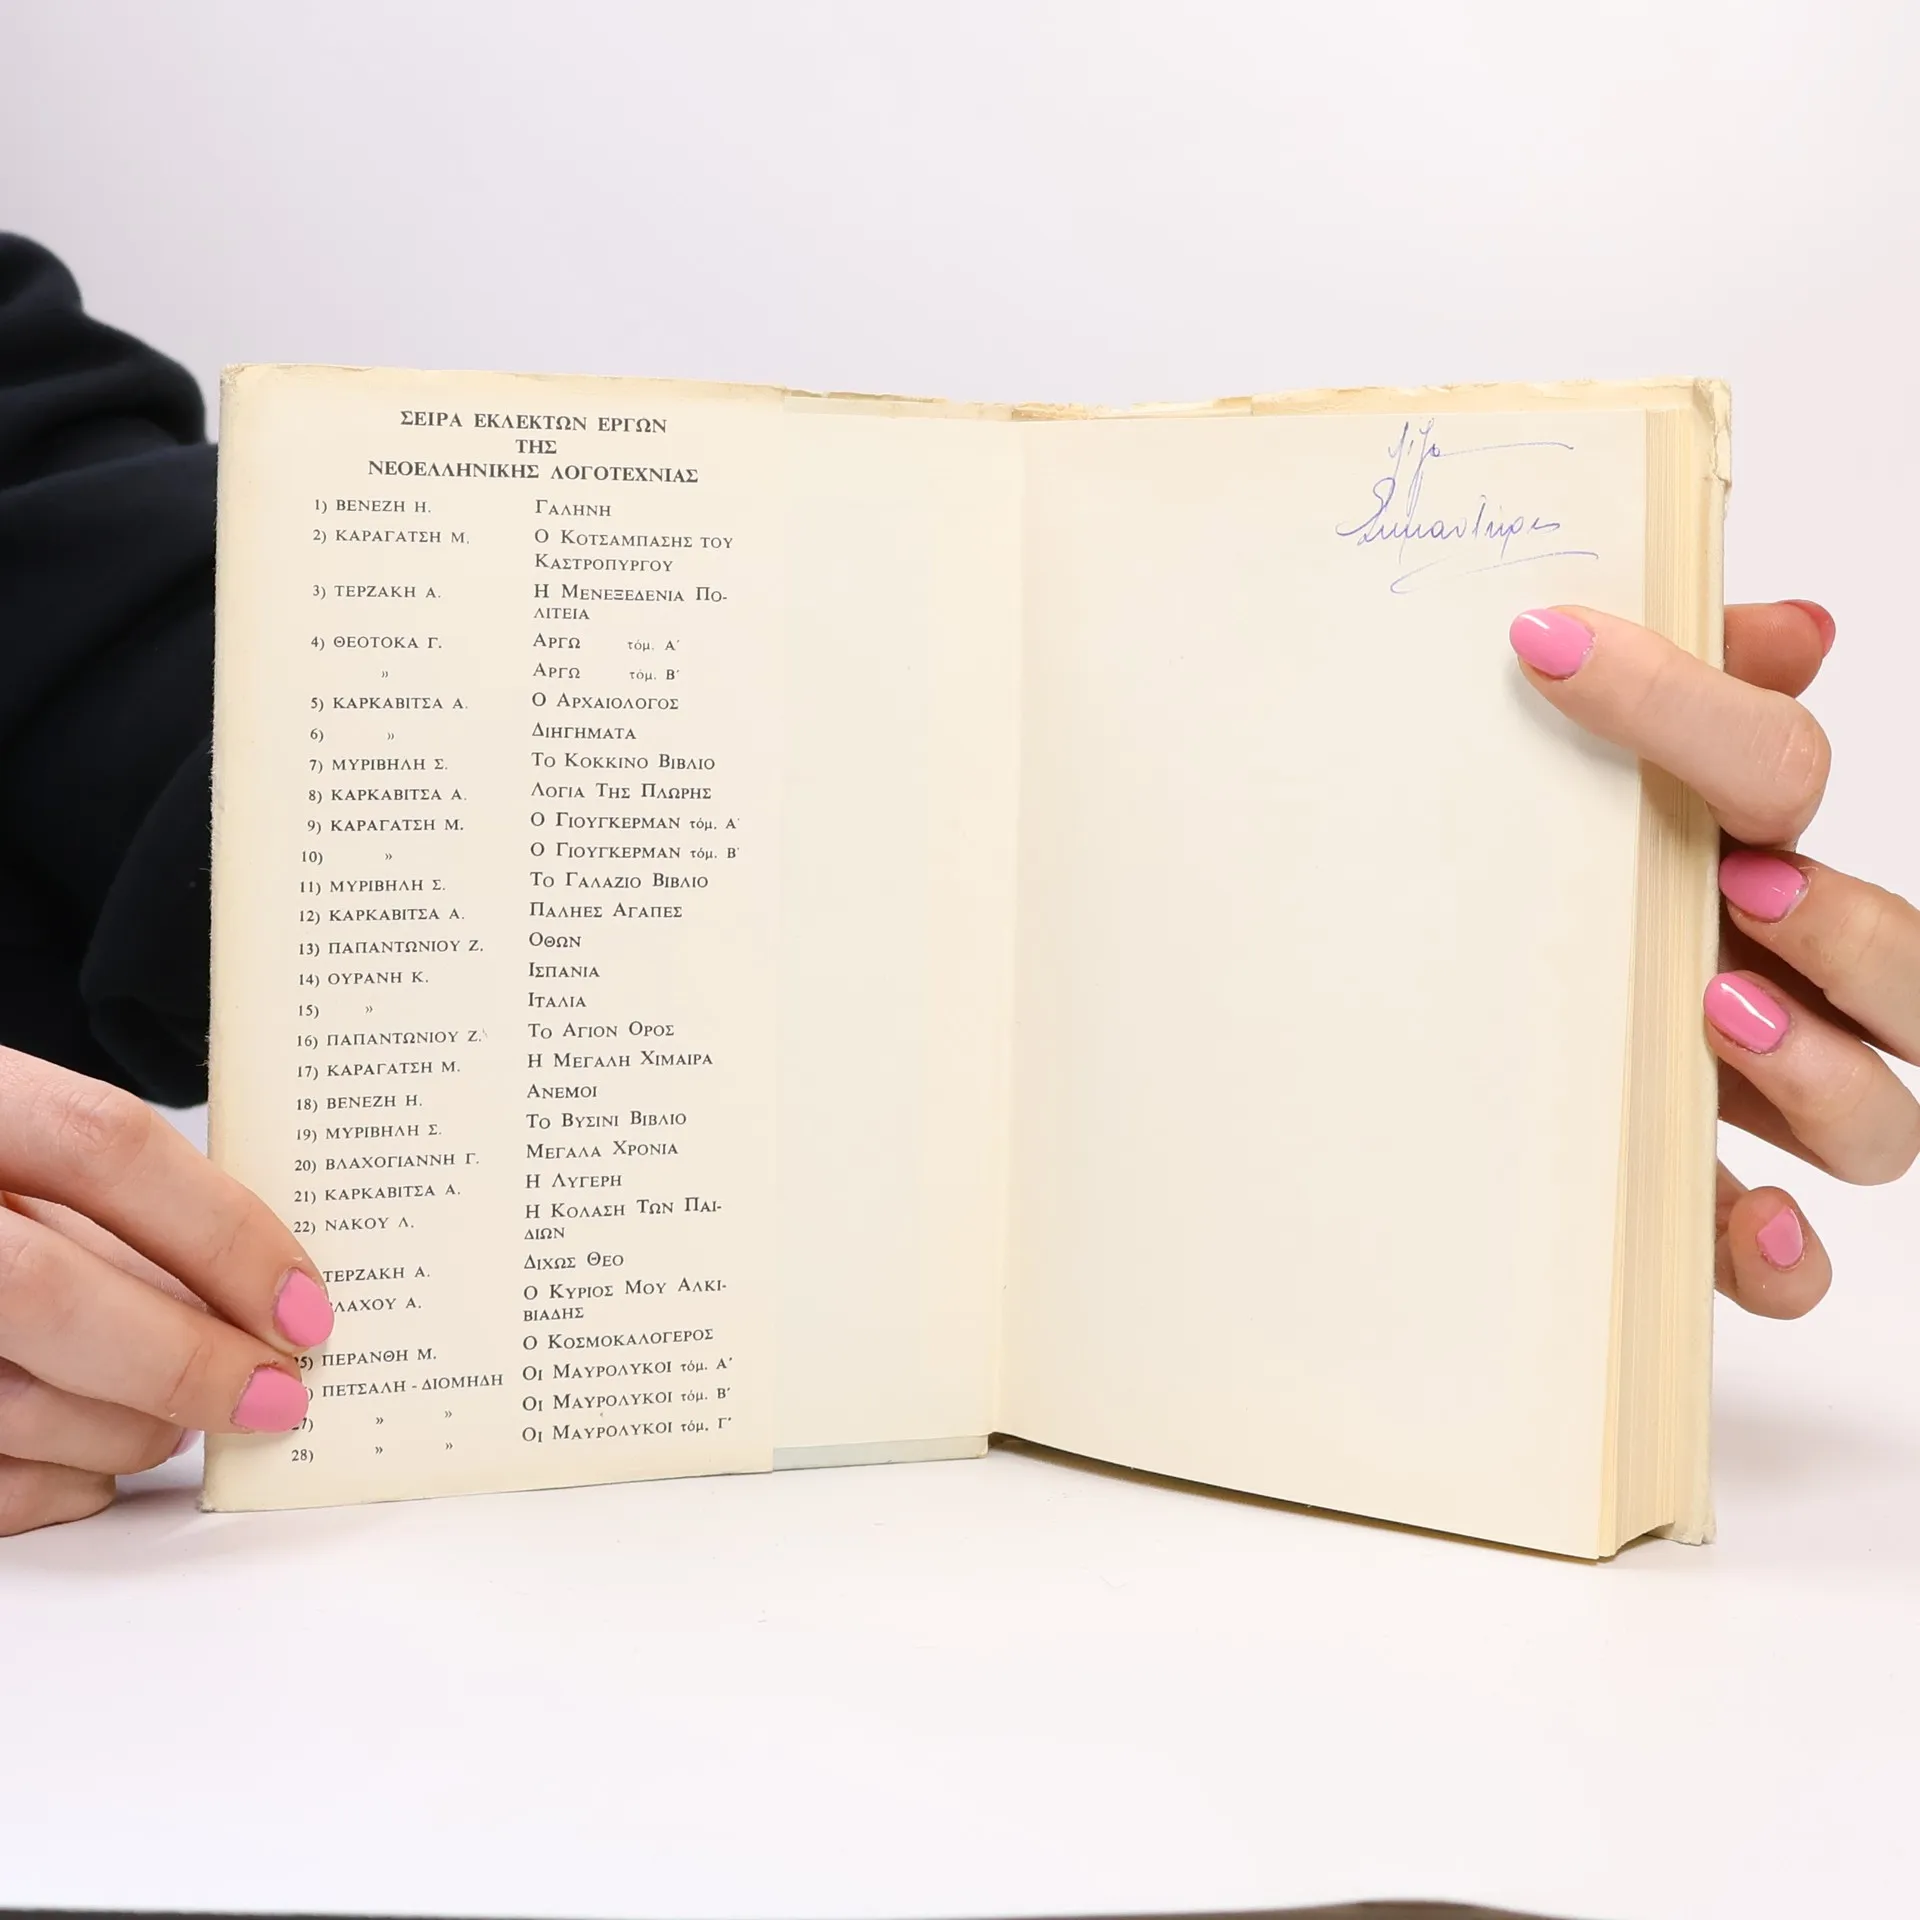 ΣΕΙΡΑ ΕΚΛΕΚΤΩΝ ΕΡΓΩΝ
ΤΗΣ
ΝΕΟΕΛΛΗΝΙΚΗΣ ΛΟΓΟΤΕΧΝΙΑΣ
1) ΒΕΝΕΖΗ Η. ΓΑΛΗΝΗ
2) ΚΑΡΑΓΑΤΣΗ Μ. Ο ΚΟΤΣΑΜΠΑΣΗΣ ΤΟΥ
ΚΑΣΤΡΟΠΥΡΓΟΥ
3) ΤΕΡΖΑΚΗ Α. Η ΜΕΝΕΞΕΔΕΝΙΑ ΠΟ-
ΛΙΤΕΙΑ
4) ΘΕΟΤΟΚΑ Γ. ΑΡΓΩ τόμ. Α΄
» ΑΡΓΩ τόμ. Β΄
5) ΚΑΡΚΑΒΙΤΣΑ Α. Ο ΑΡΧΑΙΟΛΟΓΟΣ
6) » ΔΙΗΓΗΜΑΤΑ
7) ΜΥΡΙΒΗΛΗ Σ. ΤΟ ΚΟΚΚΙΝΟ ΒΙΒΛΙΟ
8) ΚΑΡΚΑΒΙΤΣΑ Α. ΛΟΓΙΑ ΤΗΣ ΠΛΩΡΗΣ
9) ΚΑΡΑΓΑΤΣΗ Μ. Ο ΓΙΟΥΓΚΕΡΜΑΝ τόμ. Α΄
10) » Ο ΓΙΟΥΓΚΕΡΜΑΝ τόμ. Β΄
11) ΜΥΡΙΒΗΛΗ Σ. ΤΟ ΓΑΛΑΖΙΟ ΒΙΒΛΙΟ
12) ΚΑΡΚΑΒΙΤΣΑ Α. ΠΑΛΗΕΣ ΑΓΑΠΕΣ
13) ΠΑΠΑΝΤΩΝΙΟΥ Ζ. ΟΘΩΝ
14) ΟΥΡΑΝΗ Κ. ΙΣΠΑΝΙΑ
15) » ΙΤΑΛΙΑ
16) ΠΑΠΑΝΤΩΝΙΟΥ Ζ. ΤΟ ΑΓΙΟΝ ΟΡΟΣ
17) ΚΑΡΑΓΑΤΣΗ Μ. Η ΜΕΓΑΛΗ ΧΙΜΑΙΡΑ
18) ΒΕΝΕΖΗ Η. ΑΝΕΜΟΙ
19) ΜΥΡΙΒΗΛΗ Σ. ΤΟ ΒΥΣΙΝΙ ΒΙΒΛΙΟ
20) ΒΛΑΧΟΓΙΑΝΝΗ Γ. ΜΕΓΑΛΑ ΧΡΟΝΙΑ
21) ΚΑΡΚΑΒΙΤΣΑ Α. Η ΛΥΓΕΡΗ
22) ΝΑΚΟΥ Λ. Η ΚΟΛΑΣΗ ΤΩΝ ΠΑΙ-
ΔΙΩΝ
ΤΕΡΖΑΚΗ Α. ΔΙΧΩΣ ΘΕΟ
ΛΑΧΟΥ Α. Ο ΚΥΡΙΟΣ ΜΟΥ ΑΛΚΙ-
ΒΙΑΔΗΣ
5) ΠΕΡΑΝΘΗ Μ. Ο ΚΟΣΜΟΚΑΛΟΓΕΡΟΣ
) ΠΕΤΣΑΛΗ - ΔΙΟΜΗΔΗ ΟΙ ΜΑΥΡΟΛΥΚΟΙ τόμ. Α΄
27) » » ΟΙ ΜΑΥΡΟΛΥΚΟΙ τόμ. Β΄
28) » » ΟΙ ΜΑΥΡΟΛΥΚΟΙ τόμ. Γ΄